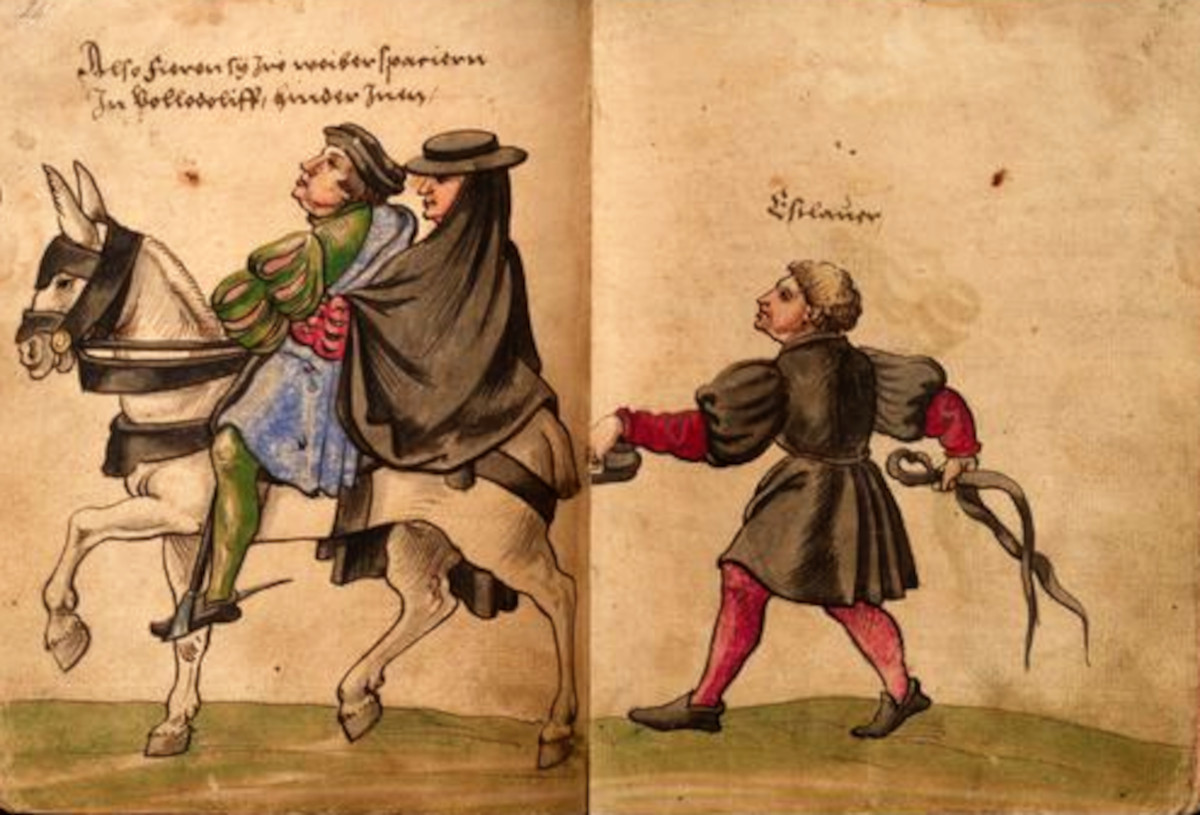 Also fieren sy Ire weiber spacieren
In Vollodoliff, hinder Inen
Esclauer